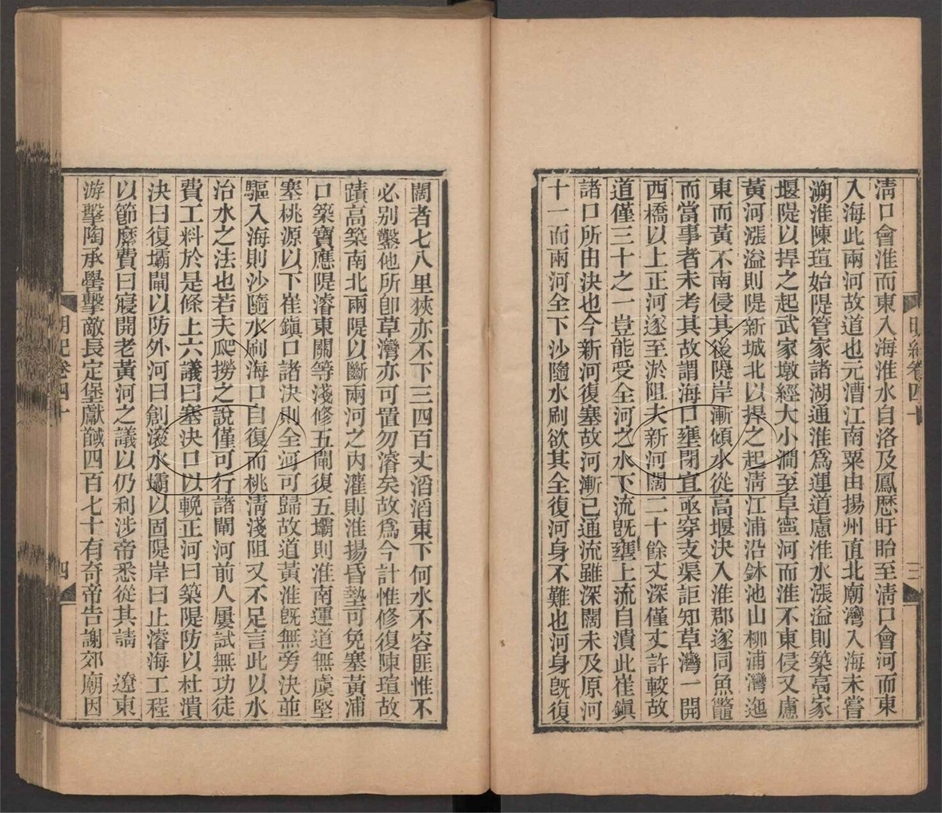 清口會淮而東入海淮水自洛及鳳歷盱眙至清口會河而東
入海此兩河故道也元漕江南粟由揚州直北廟灣入海未嘗
溯淮陳瑄始隄管家諸湖通淮爲運道慮淮水漲溢則築高家
堰隄以捍之起武家墩經大小澗至阜寧河而淮不東侵又慮
黃河漲溢則隄新城北以捍之起清江浦沿鉢池山柳浦灣迤
東而黃不南侵其後隄岸漸傾水從高堰決入淮郡遂同魚鼈
而當事者未考其故謂海口壅閉宜亟穿支渠詎知草灣一開
西橋以上正河遂至淤阻夫新河闊二十餘丈深僅丈許較故
道僅三十之一豈能受全河之水下流旣壅上流自潰此崔鎮
諸口所由決也今新河復塞故河漸已通流雖深闊未及原河
十一而兩河全下沙隨水刷欲其全復河身不難也河身旣復
明紀卷四十
三
闊者七八里狹亦不下三四百丈滔滔東下何水不容匪惟不
必別鑿他所卽草灣亦可置勿濬矣故爲今計惟修復陳瑄故
蹟高築南北兩隄以斷兩河之內灌則淮揚昏墊可免塞黃浦
口築寶應隄濬東關等淺修五閘復五壩則淮南運道無虞堅
塞桃源以下崔鎮口諸決則全河可歸故道黃淮旣無旁決並
驅入海則沙隨水刷海口自復而桃清淺阻又不足言此以水
治水之法也若夫爬撈之說僅可行諸閘河前人屢試無功徒
費工料於是條上六議曰塞決口以輓正河曰築隄防以杜潰
決曰復壩閘以防外河曰創滾水壩以固隄岸曰止濬海工程
以節糜費曰寢開老黃河之議以仍利涉帝悉從其請　遼東
游擊陶承嚳擊敵長定堡獻馘四百七十有奇帝告謝郊廟因
明紀卷四十
四